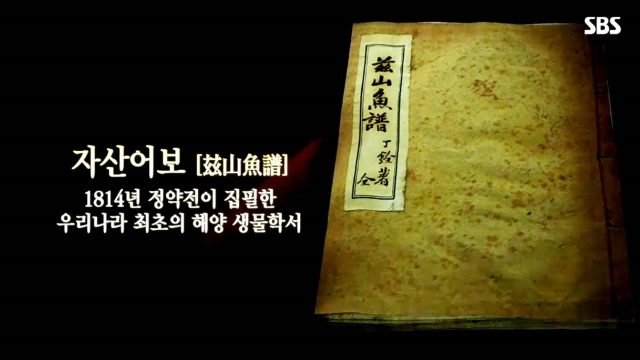 SBS
자산어보 [玆山魚譜]
1814년 정약전이 집필한
우리나라 최초의 해양 생물학서
玆山魚譜
丁銓著
全